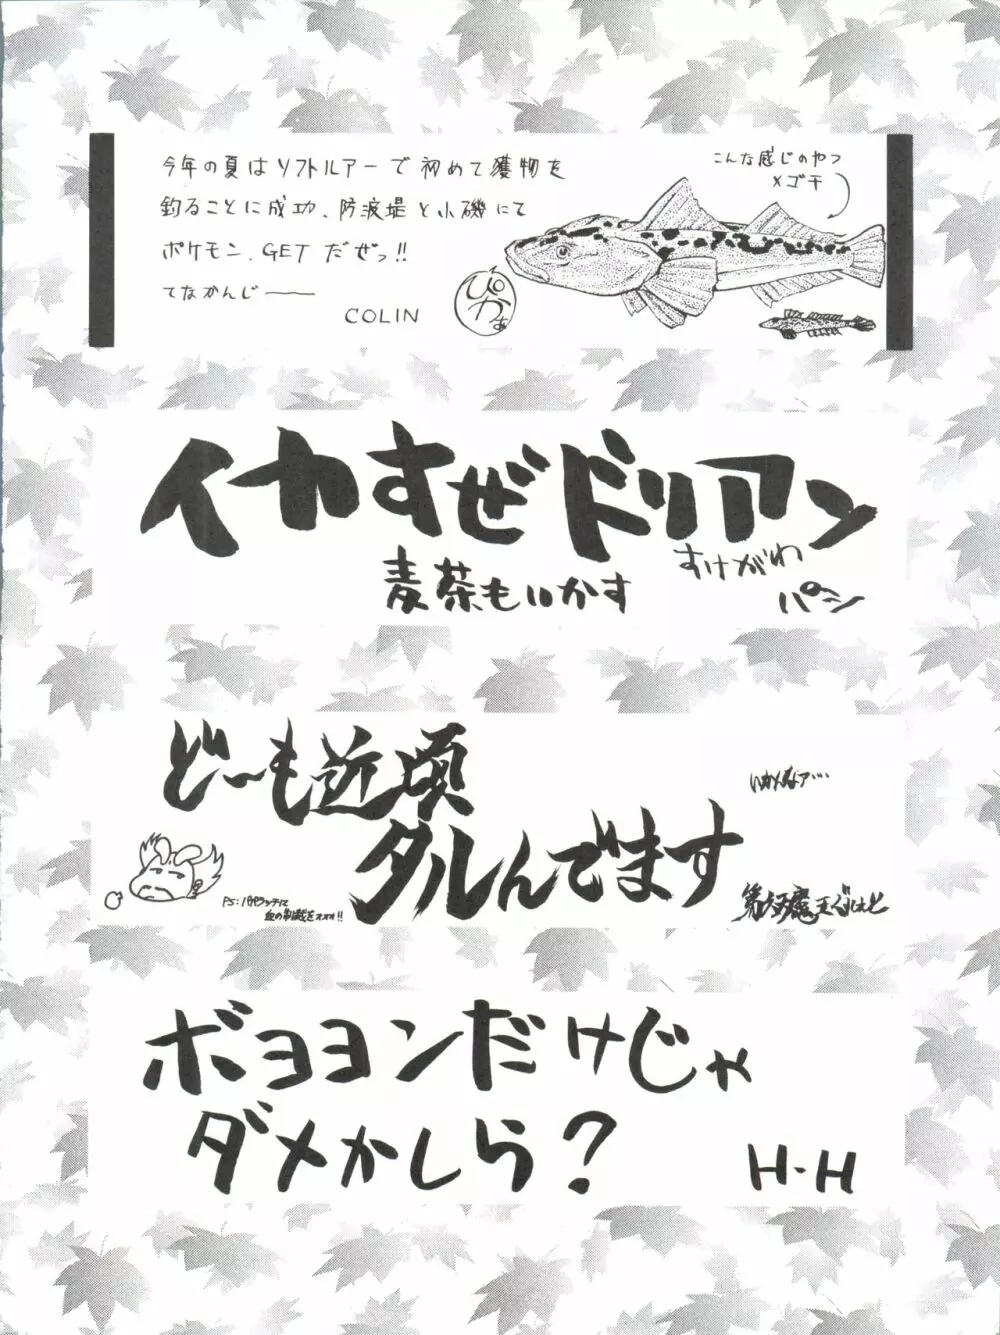 今年の夏はソフトルアーで初めて獲物を
釣ることに成功、防波堤と小磯にて
ポケモン、GETだぜっ!!
てなかんじ——
COLIN
ぴかぁ
こんな感じのやつ
メゴチ
イカすぜドリアン
麦茶もいかす
すけがわ
パシ
どーも近頃
ダルんでます
いかんなァ…
血の制裁をォォォ!!
ボヨヨンだけじゃ
ダメかしら?
H-H